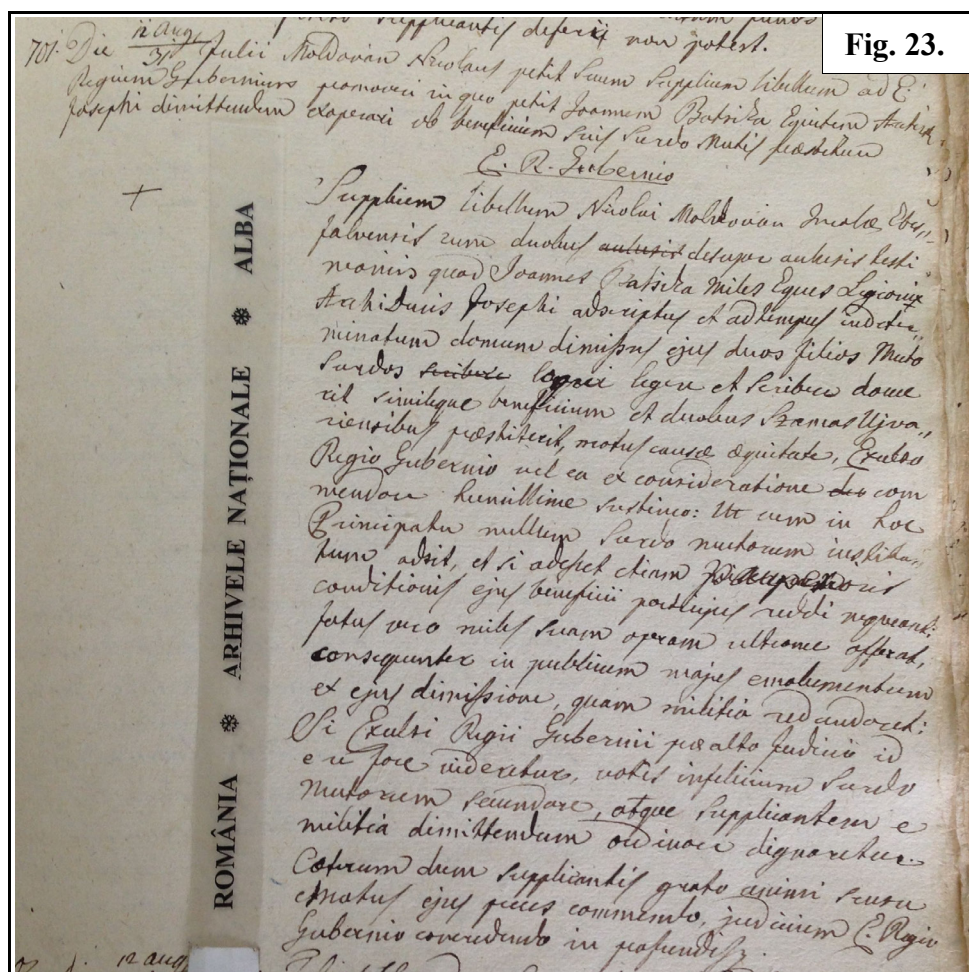 Fig. 23.
supplicantis deferri non potest.
701. Die 12 aug / 31 Julii Moldovan Nicolaus petit Suum Supplicem libellum ad E.
Regium Gubernium promoveri in quo petit Joannem Batsika Equitem Archid.
Josephi dimittendum exoperari ob beneficium suis Surdo Mutis præstitum
E. R. Gubernio
Supplicem libellum Nicolai Moldovan Incolæ Ebes„
falvensis cum duobus desuper advisis testi
moniis quod Joannes Batsika Miles Eques Legionis
Archiducis Josephi adscriptus et ad tempus indeter„
minatum domum dimissus ejus duos filios Muto
Surdos legere et scribere doce
rit similique beneficium et duobus Szamos Ujva„
riensibus præstiterit, motus causæ æquitate, Excelso
Regio Gubernio vel ea ex consideratione com
mendare humillime sustineo: Ut cum in hoc
Principatu nullum Surdo mutorum institu„
tum adsit, et si adesset etiam
conditionis ejus beneficii participes reddi nequeant:
fatus vero miles suam operam ultronee offerat,
consequenter in publicum majus emolumentum
ex ejus dimissione, quam militia redundaret:
Si Excelsi Regii Gubernii præalto Judicio id
e re fore videretur, votis infelicium Surdo
mutorum secundare, atque Supplicantem e
militia dimittendum ordinari dignaretur.
Cæterum dum supplicantis grato animi sensu
ejus preces commendo, judicium E. Regio
Gubernio concredendo in profundiss.
12 aug
ROMÂNIA ❄ ARHIVELE NAȚIONALE ❄ ALBA